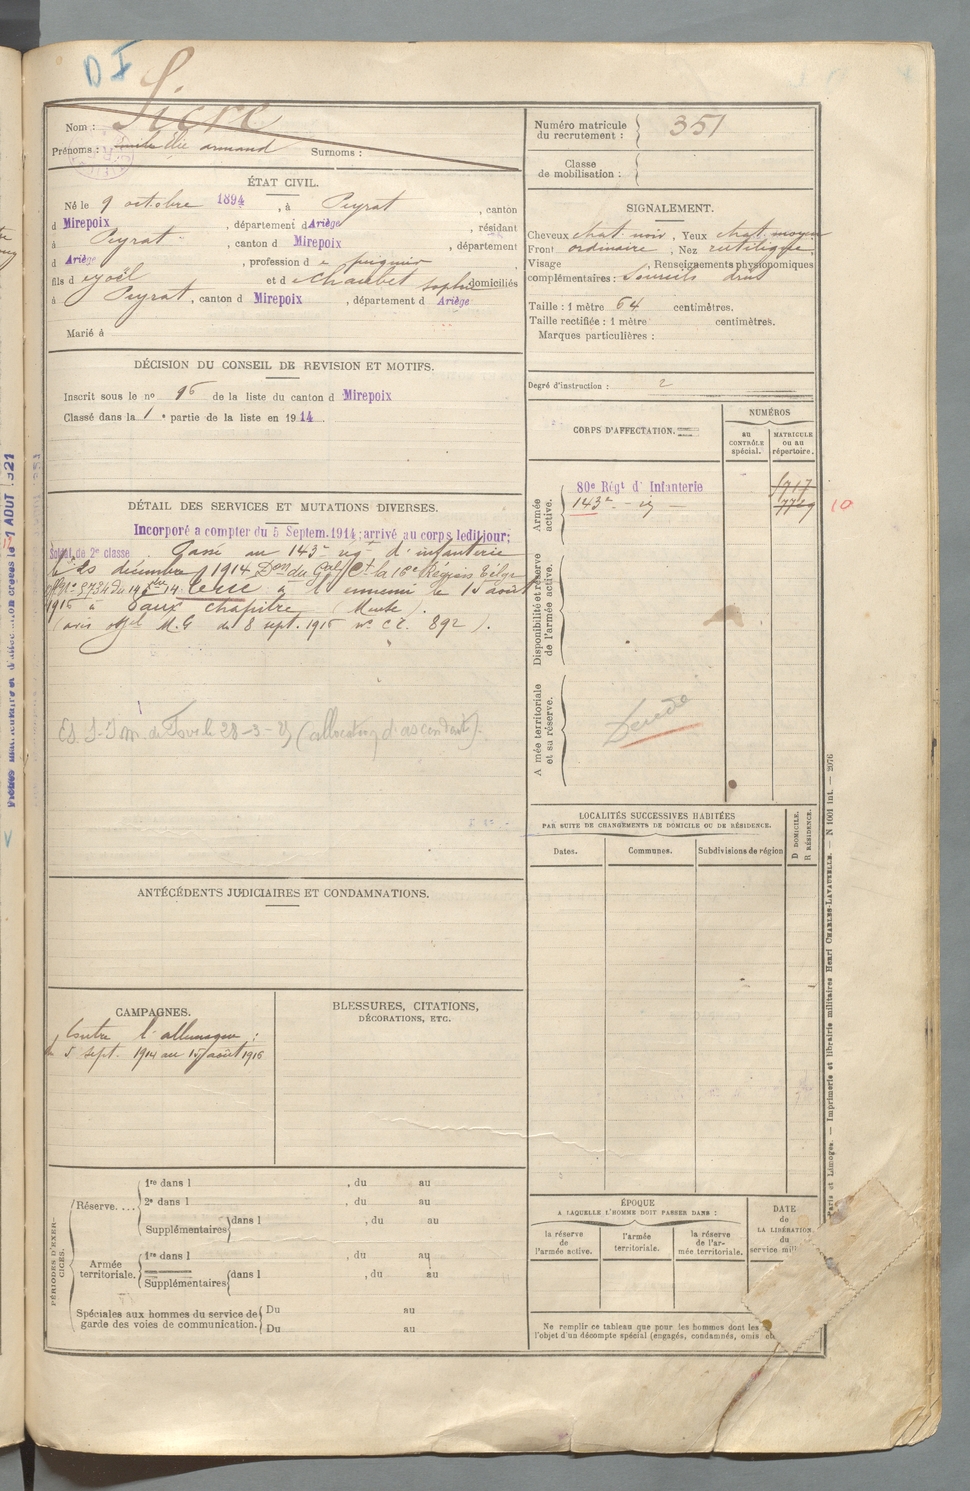 D I
Sicre
Nom :
Prénoms : Elie armand Surnoms :
Numéro matricule
du recrutement : 351
Classe
de mobilisation :
ÉTAT CIVIL.
Né le 9 octobre 1894, à Peyrat, canton
d Mirepoix, département d Ariège, résidant
à Peyrat, canton d Mirepoix, département
d Ariège, profession d
fils d et d Chaubet Sophie domiciliés
à Peyrat, canton d Mirepoix, département d Ariège
Marié à
SIGNALEMENT.
Cheveux chat. noir, Yeux chat. moyen
Front ordinaire, Nez rectiligne
Visage , Renseignements physionomiques
complémentaires : Sourcils droits
Taille : 1 mètre 64 centimètres.
Taille rectifiée : 1 mètre centimètres.
Marques particulières :
Degré d'instruction : 2
DÉCISION DU CONSEIL DE REVISION ET MOTIFS.
Inscrit sous le nº 16 de la liste du canton d Mirepoix
Classé dans la 1 e partie de la liste en 1914.
CORPS D'AFFECTATION.
NUMÉROS
au
CONTRÔLE
spécial.
MATRICULE
ou au
répertoire.
Armée
active.
80e Régt d'Infanterie
143e 7749 10
Disponibilité et réserve
de l'armée active.
Armée territoriale
et sa réserve.
Décédé
DÉTAIL DES SERVICES ET MUTATIONS DIVERSES.
Incorporé a compter du 5 Septem. 1914; arrivé au corps ledit jour;
Soldat de 2e classe. Passé au 143e régt d'infanterie
le décembre 1914 Don du Gal Ct la 16e Région
à l'ennemi le 15 août
1916 à Vaux Chapitre (Meuse).
(avis offel M.G du 8 sept. 1916 nº 892).
28-3- (allocation d'ascendants).
LOCALITÉS SUCCESSIVES HABITÉES
PAR SUITE DE CHANGEMENTS DE DOMICILE OU DE RÉSIDENCE.
Dates.
Communes.
Subdivisions de région
D DOMICILE.
R RÉSIDENCE.
ANTÉCÉDENTS JUDICIAIRES ET CONDAMNATIONS.
CAMPAGNES.
Contre l'allemagne :
du 5 sept. 1914 au 15 août 1916
BLESSURES, CITATIONS,
DÉCORATIONS, ETC.
PÉRIODES D'EXER-
CICES.
Réserve....
1re dans l , du au
2e dans l , du au
Supplémentaires dans l , du au
Armée
territoriale.
1re dans l , du au
Supplémentaires dans l , du au
Spéciales aux hommes du service de
garde des voies de communication.
Du au
Du au
ÉPOQUE
A LAQUELLE L'HOMME DOIT PASSER DANS :
la réserve
de
l'armée active.
l'armée
territoriale.
la réserve
de l'ar-
mée territoriale.
DATE
de
LA LIBÉRATION
du
service mili
Ne remplir ce tableau que pour les hommes dont les
l'objet d'un décompte spécial (engagés, condamnés, omis
Paris et Limoges. — Imprimerie et librairie militaires Henri CHARLES-LAVAUZELLE. — N 1001 int. — 2076